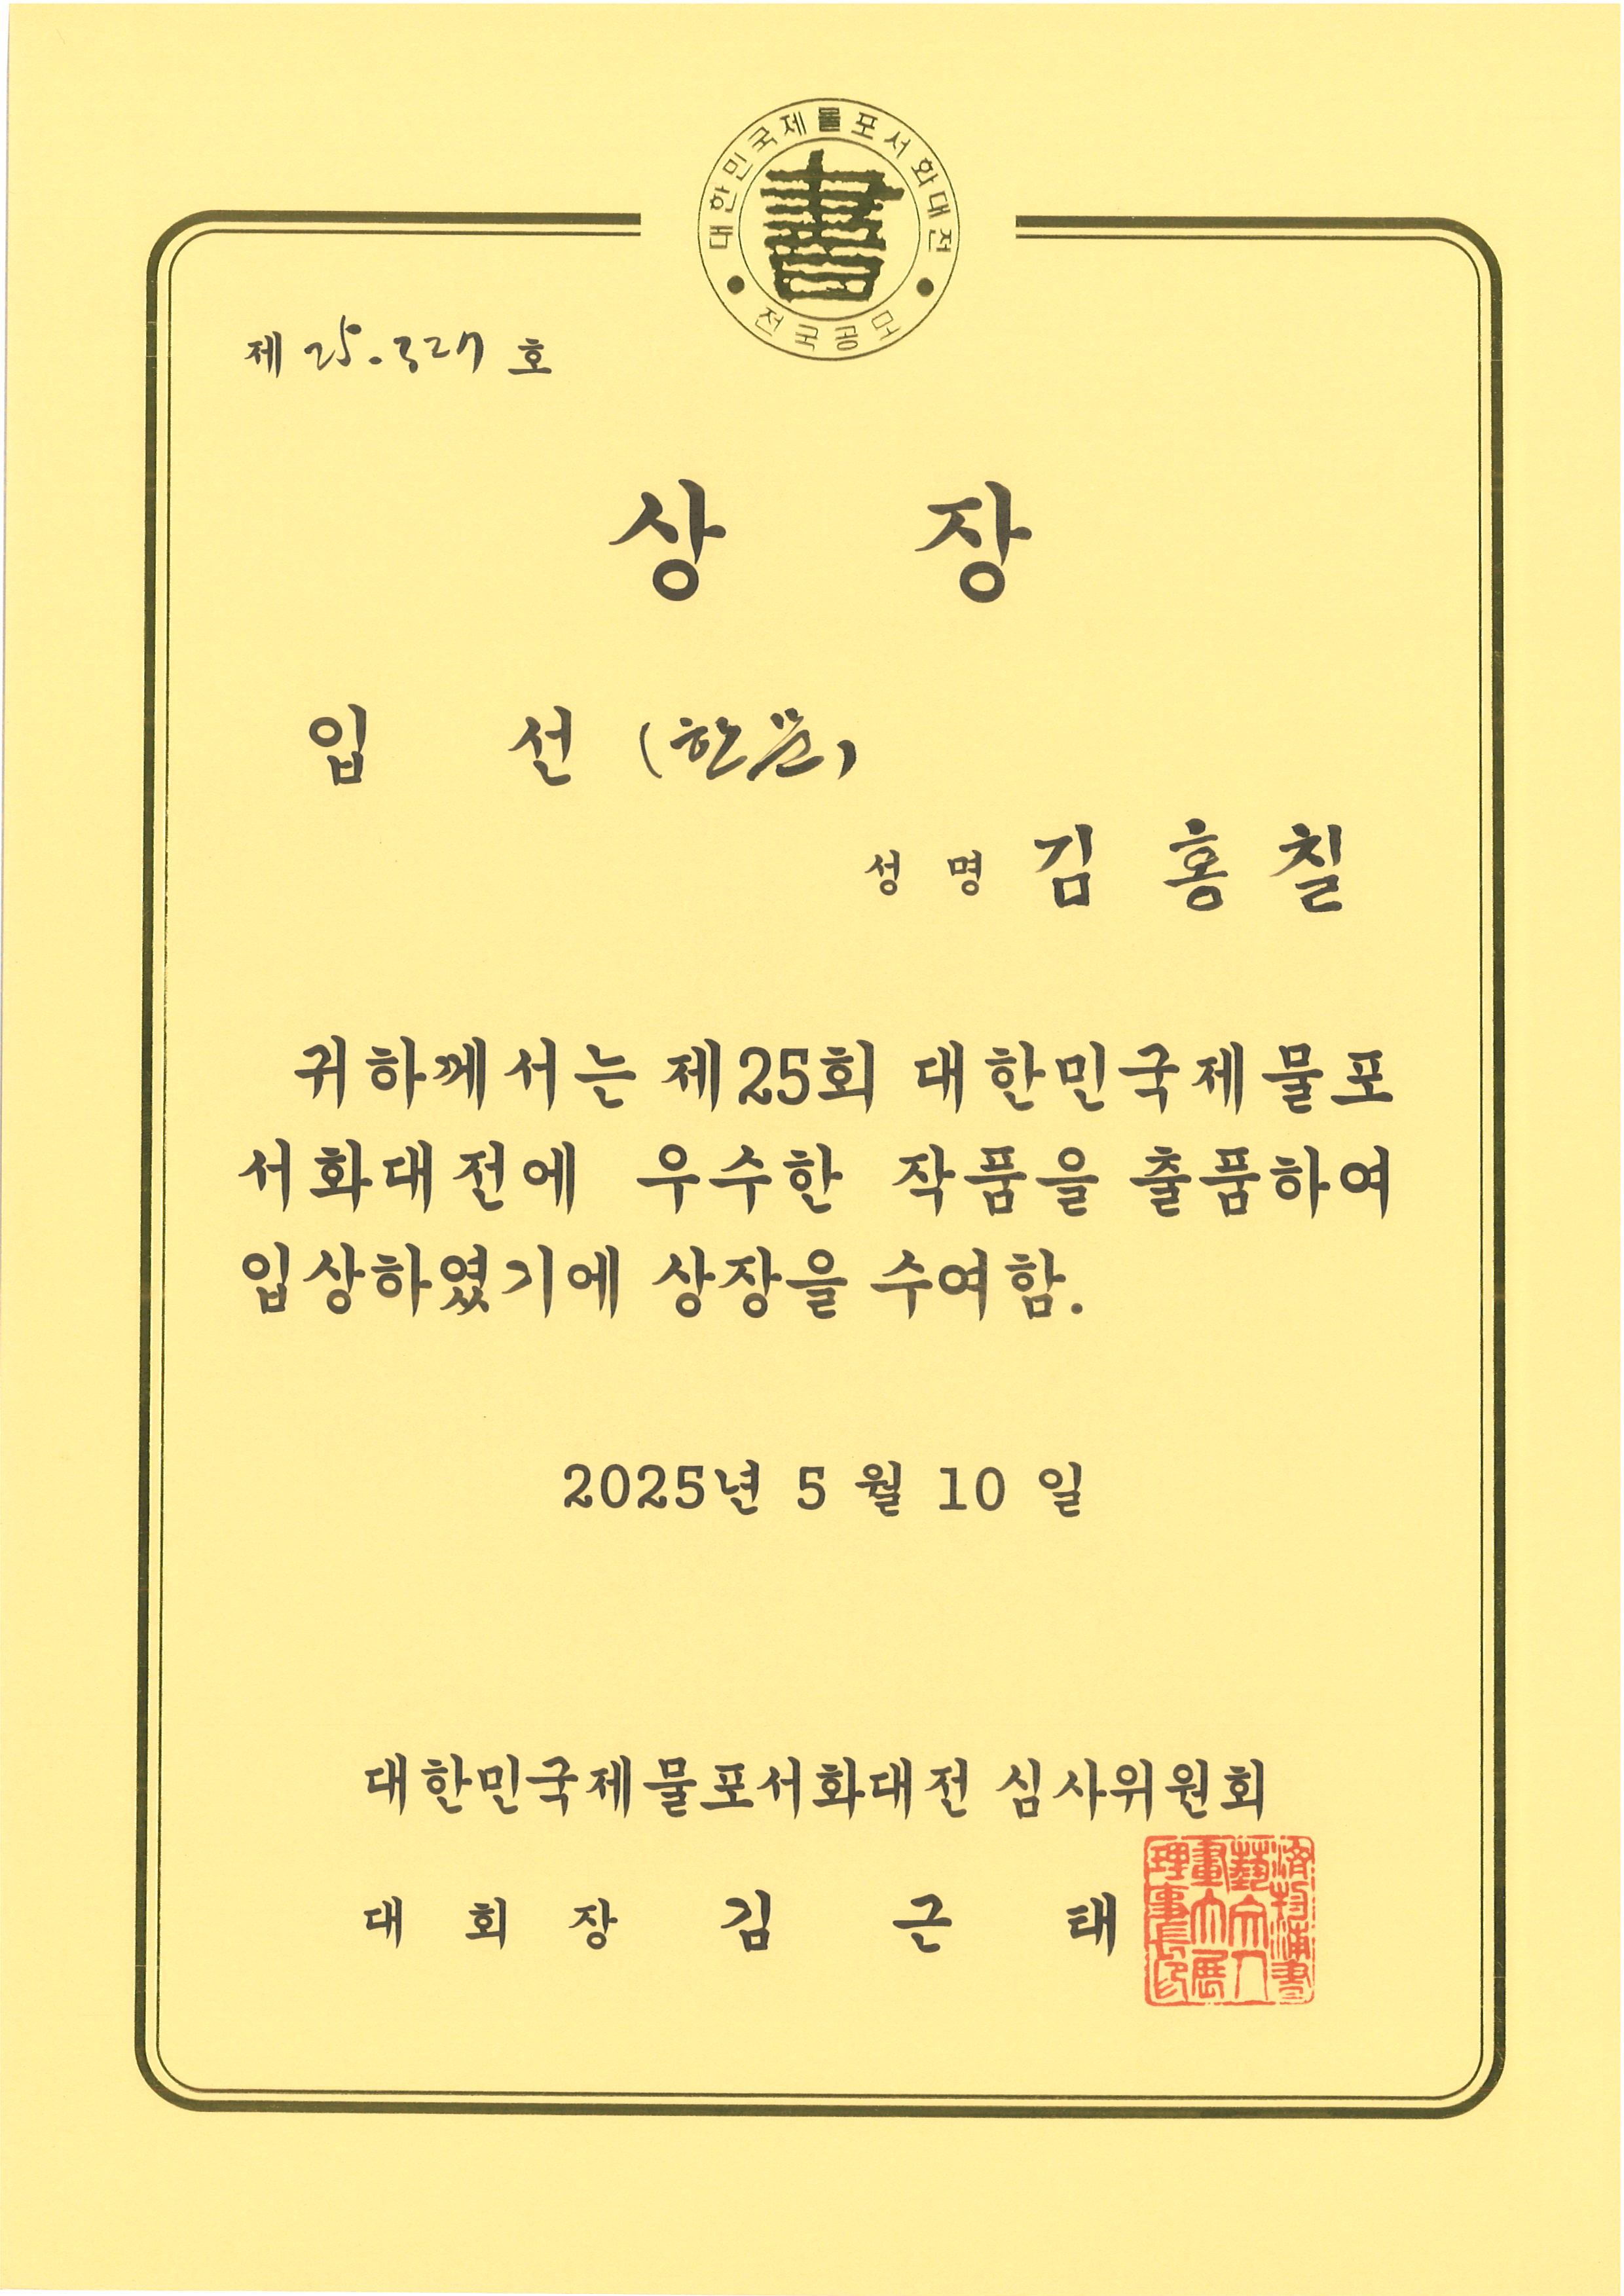 대한민국제물포서화대전
書
전국공모
제 25-327 호
상 장
입 선 (한문)
성 명 김 홍 칠
귀하께서는 제25회 대한민국제물포
서화대전에 우수한 작품을 출품하여
입상하였기에 상장을 수여함.
2025년 5 월 10 일
대한민국제물포서화대전 심사위원회
대 회 장 김 근 태